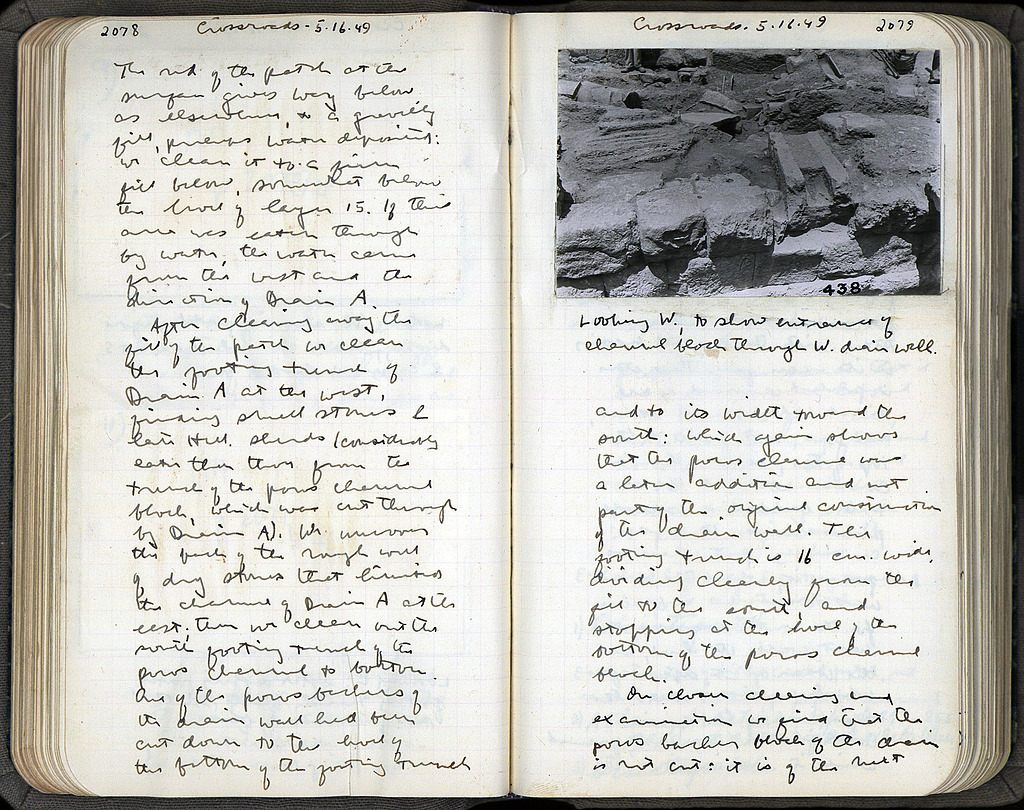 2078 Crossroads - 5.16.49
The red of the patch at the
surface gives way below
as elsewhere, to a gravelly
fill, perhaps water deposited:
we clean it to a firm
fill below, somewhat below
the level of layer 15. If this
area was eaten through
by water, the water came
from the west and the
direction of Drain A.
After clearing away the
fill of the patch we clean
the footing trench of
Drain A at the west,
finding small stones &
late Hell. sherds (considerably
later than those from the
trench of the poros channel
block, which was cut through
by Drain A). We uncover
the back of the rough wall
of dry stones that limited
the channel of Drain A at the
east; then we clean out the
south footing trench of the
poros channel to bottom.
One of the poros backers of
the drain wall had been
cut down to the level of
the bottom of the footing trench
Crossroads - 5.16.49 2079
438
Looking W., to show entrance of
channel block through W. drain wall.
and to its width toward the
south: which again shows
that the poros channel was
a later addition and not
part of the original construction
of the drain wall. The
footing trench is 16 cm. wide,
dividing clearly from the
fill to the south, and
stopping at the level of the
bottom of the poros channel
block.
On closer cleaning and
examination we find that the
poros backer block of the drain
is not cut: it is of the next